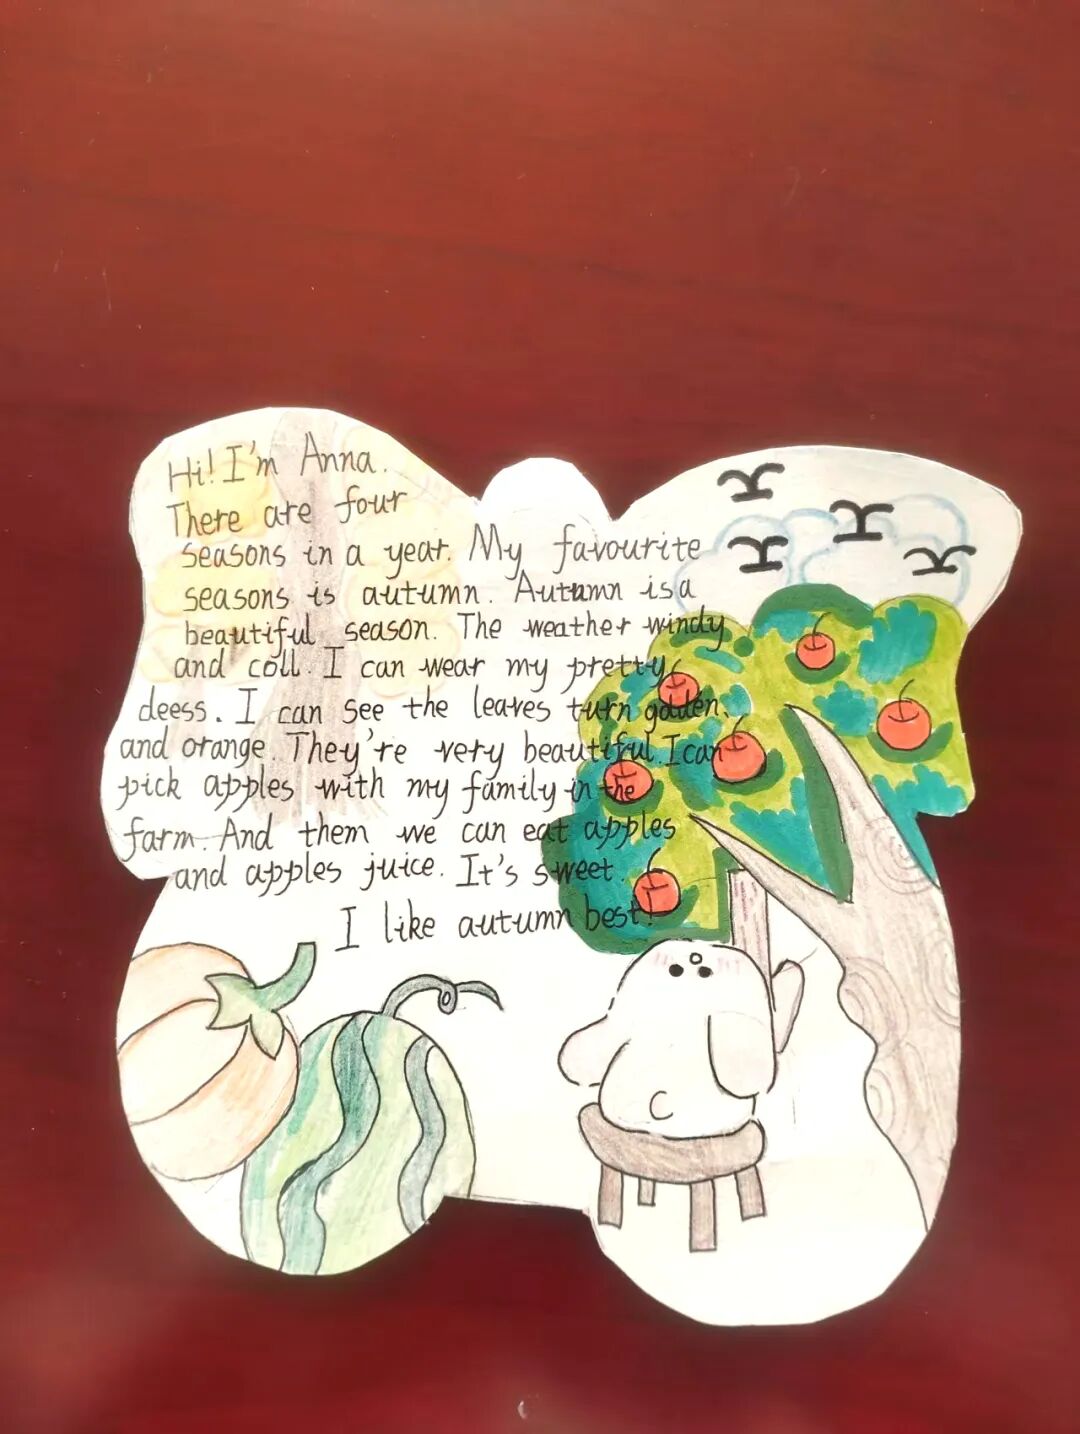 Hi! I'm Anna.
There are four
seasons in a year. My favourite
seasons is autumn. Autumn is a
beautiful season. The weather windy
and coll. I can wear my pretty
deess. I can see the leaves turn golden.
and orange. They're very beautiful. I can
pick apples with my family in the
farm. And them we can eat apples
and apples juice. It's sweet.
I like autumn best!